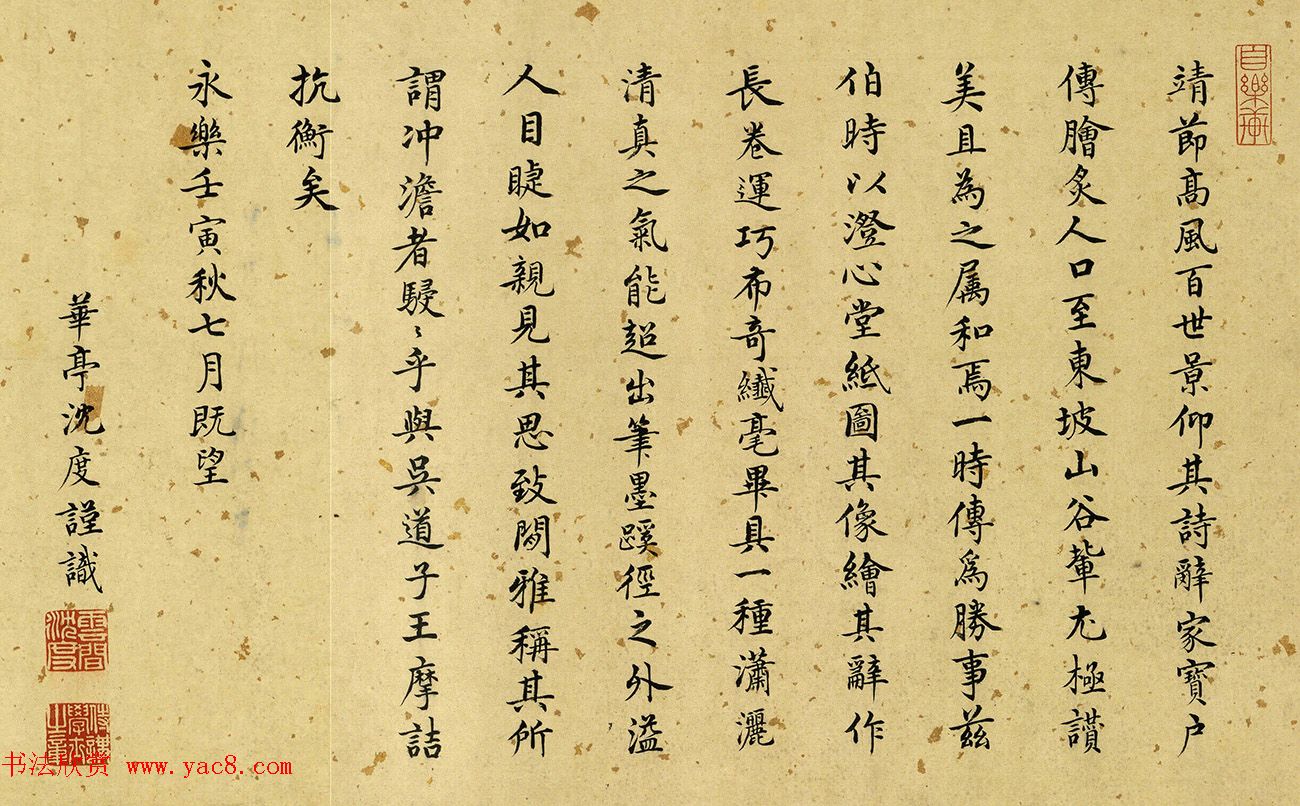 靖節高風百世景仰其詩辭家寶户
傳膾炙人口至東坡山谷輩尤極讚
美且為之属和焉一時傳爲勝事兹
伯時以澄心堂紙圖其像繪其辭作
長卷運巧布奇纖毫畢具一種瀟灑
清真之氣能超出筆墨蹊徑之外溢
人目睫如親見其思致閒雅稱其所
謂冲澹者駸〻乎與吳道子王摩詰
抗衡矣
永樂壬寅秋七月既望
華亭沈度謹識
自樂
书法欣赏 www.yac8.com